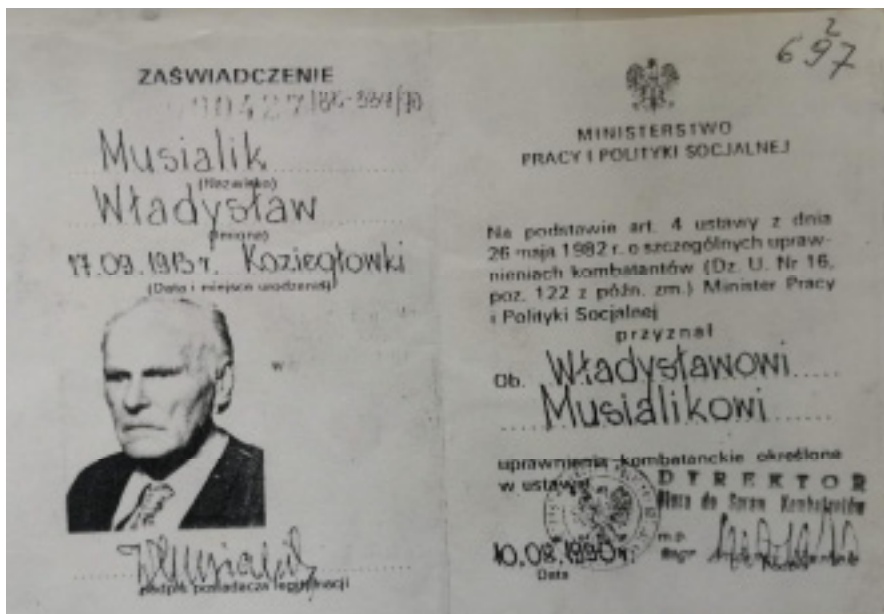 ZAŚWIADCZENIE
Musialik
(Nazwisko)
Władysław
(Imiona)
17.09.1913 r. Koziegłowki
(Data i miejsce urodzenia)
W. Musialik
podpis posiadacza legitymacji
697
2
MINISTERSTWO
PRACY I POLITYKI SOCJALNEJ
Na podstawie art. 4 ustawy z dnia
26 maja 1982 r. o szczególnych upraw-
nieniach kombatantów (Dz. U. Nr 16,
poz. 122 z późn. zm.) Minister Pracy
i Polityki Socjalnej
przyznał
Ob. Władysławowi
Musialikowi
uprawnienia kombatanckie określone
w ustawie.
DYREKTOR
Biura do Spraw Kombatantów
10.08.1990 r. m.p.
Data mgr